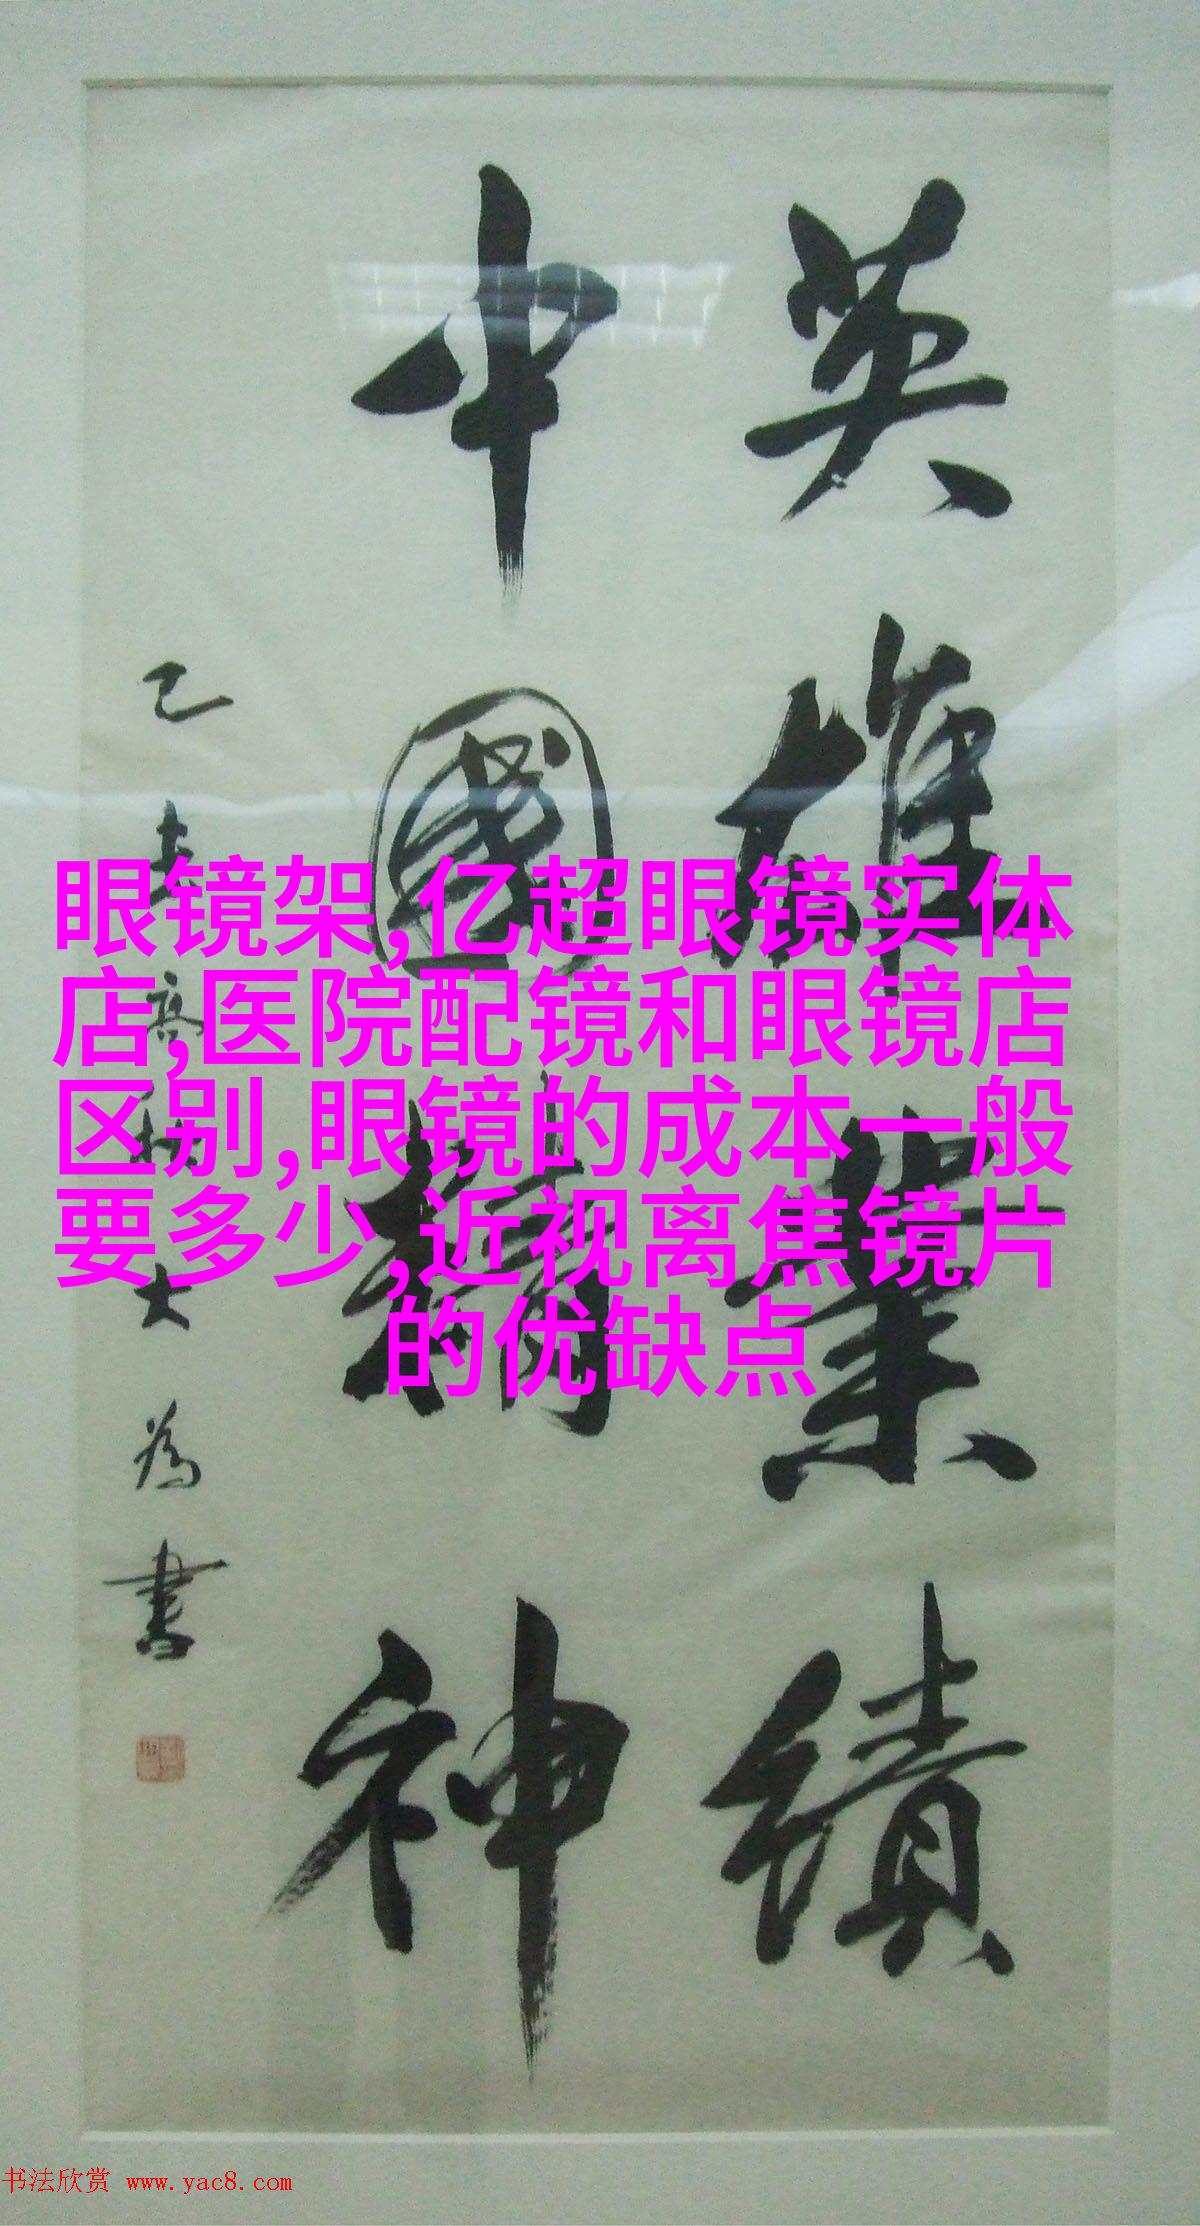 英雄業績
中國精神
己丑高秋大為書
眼镜架,亿超眼镜实体
店,医院配镜和眼镜店
区别,眼镜的成本一般
要多少,近视离焦镜片
的优缺点
书法欣赏 www.yac8.com